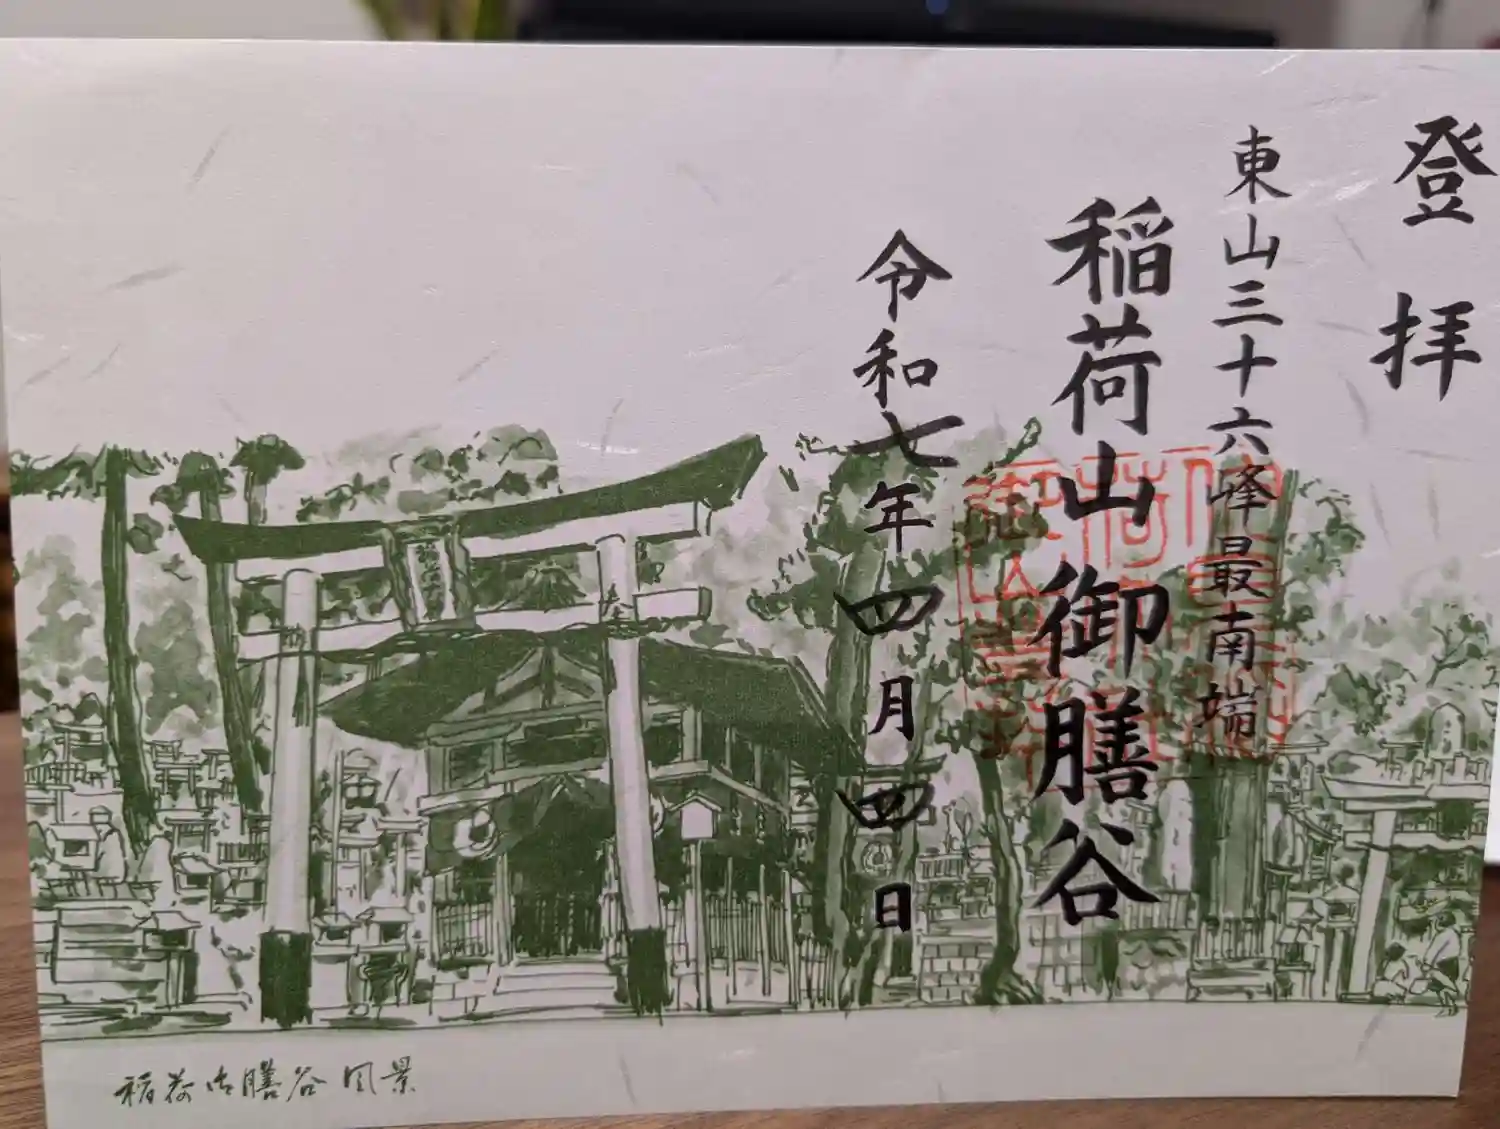 登拝
東山三十六峰最南端
稲荷山御膳谷
令和七年四月四日
稲荷御膳谷風景